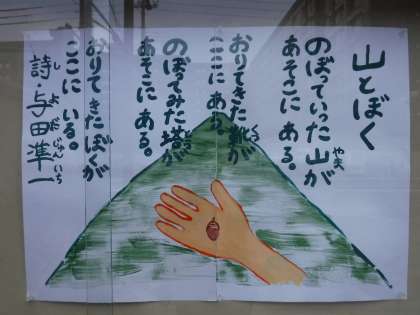 山とぼく
のぼっていった山が
やま
あそこに ある。
おりてきた靴が
くつ
ここに ある。
のぼってみた塔が
とう
あそこに ある。
おりてきたぼくが
ここに いる。
詩・与田準一
し よだ じゅんいち